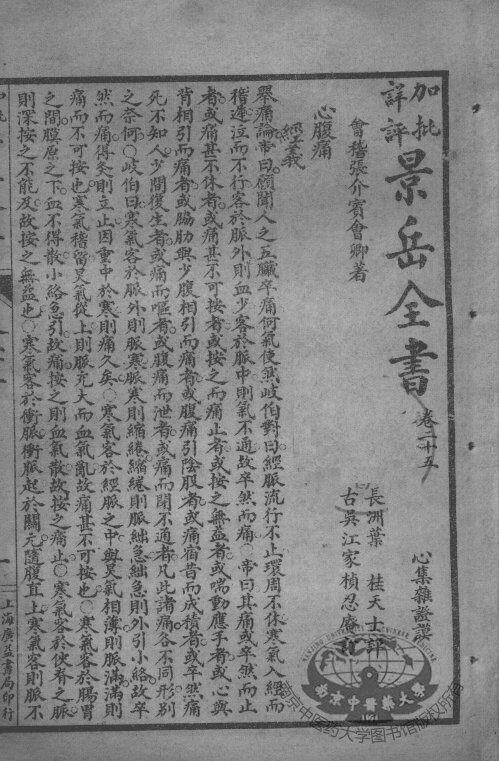 加批詳評景岳全書卷二十五
心集雜證謨
會稽張介賓會卿著
長洲葉 桂天士評
古吳江家楨忍庵
心腹痛
經義
舉痛論帝曰願聞人之五臟卒痛何氣使然岐伯對曰經脈流行不止環周不休寒氣入經而
稽遲泣而不行客於脈外則血少客於脈中則氣不通故卒然而痛○帝曰其痛或卒然而止
者或痛甚不休者或痛甚不可按者或按之而痛止者或按之無益者或喘動應手者或心與
背相引而痛者或脇肋與少腹相引而痛者或腹痛引陰股者或痛宿昔而成積者或卒然痛
死不知人少間復生者或痛而嘔者或腹痛而泄者或痛而閉不通者凡此諸痛各不同形別
之奈何○岐伯曰寒氣客於脈外則脈寒脈寒則縮踡縮踡則脈絀急絀急則外引小絡故卒
然而痛得炅則立止因重中於寒則痛久矣○寒氣客於經脈之中與炅氣相薄則脈滿滿則
痛而不可按也寒氣稽留炅氣從上則脈充大而血氣亂故痛甚不可按也○寒氣客於腸胃
之間膜原之下血不得散小絡急引故痛按之則血氣散故按之痛止○寒氣客於俠脊之脈
則深按之不能及故按之無益也○寒氣客於衝脈衝脈起於關元隨腹直上寒氣客則脈不
上海廣益書局印行
南京中醫藥大學
南京中医药大学图书馆版权所有